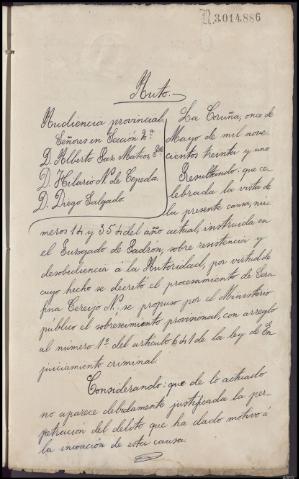 R.3.014.886
Auto.
Audiencia provincial
Señores en Sección 2ª
D. Alberto Paz Mateos Pte
D. Hilario N. de Cepeda
D. Diego Salgado
La Coruña, once de
Mayo de mil nove-
cientos treinta y uno
Resultando: que ce-
lebrada la vista de
la presente causa, nú-
meros 14 y 354 del año actual, instruida en
el Juzgado de Padrón, sobre resistencia y
desobediencia á la Autoridad, por virtud de
cuyo hecho se decretó el procesamiento de Sera
fina Cereijo N., se propuso por el Ministerio
público el sobreseimiento provisional, con arreglo
al número 1º del artículo 641 de la ley de En
juiciamiento criminal.
Considerando: que de lo actuado
no aparece debidamente justificada la per-
petración del delito que ha dado motivo á
la incoación de esta causa.